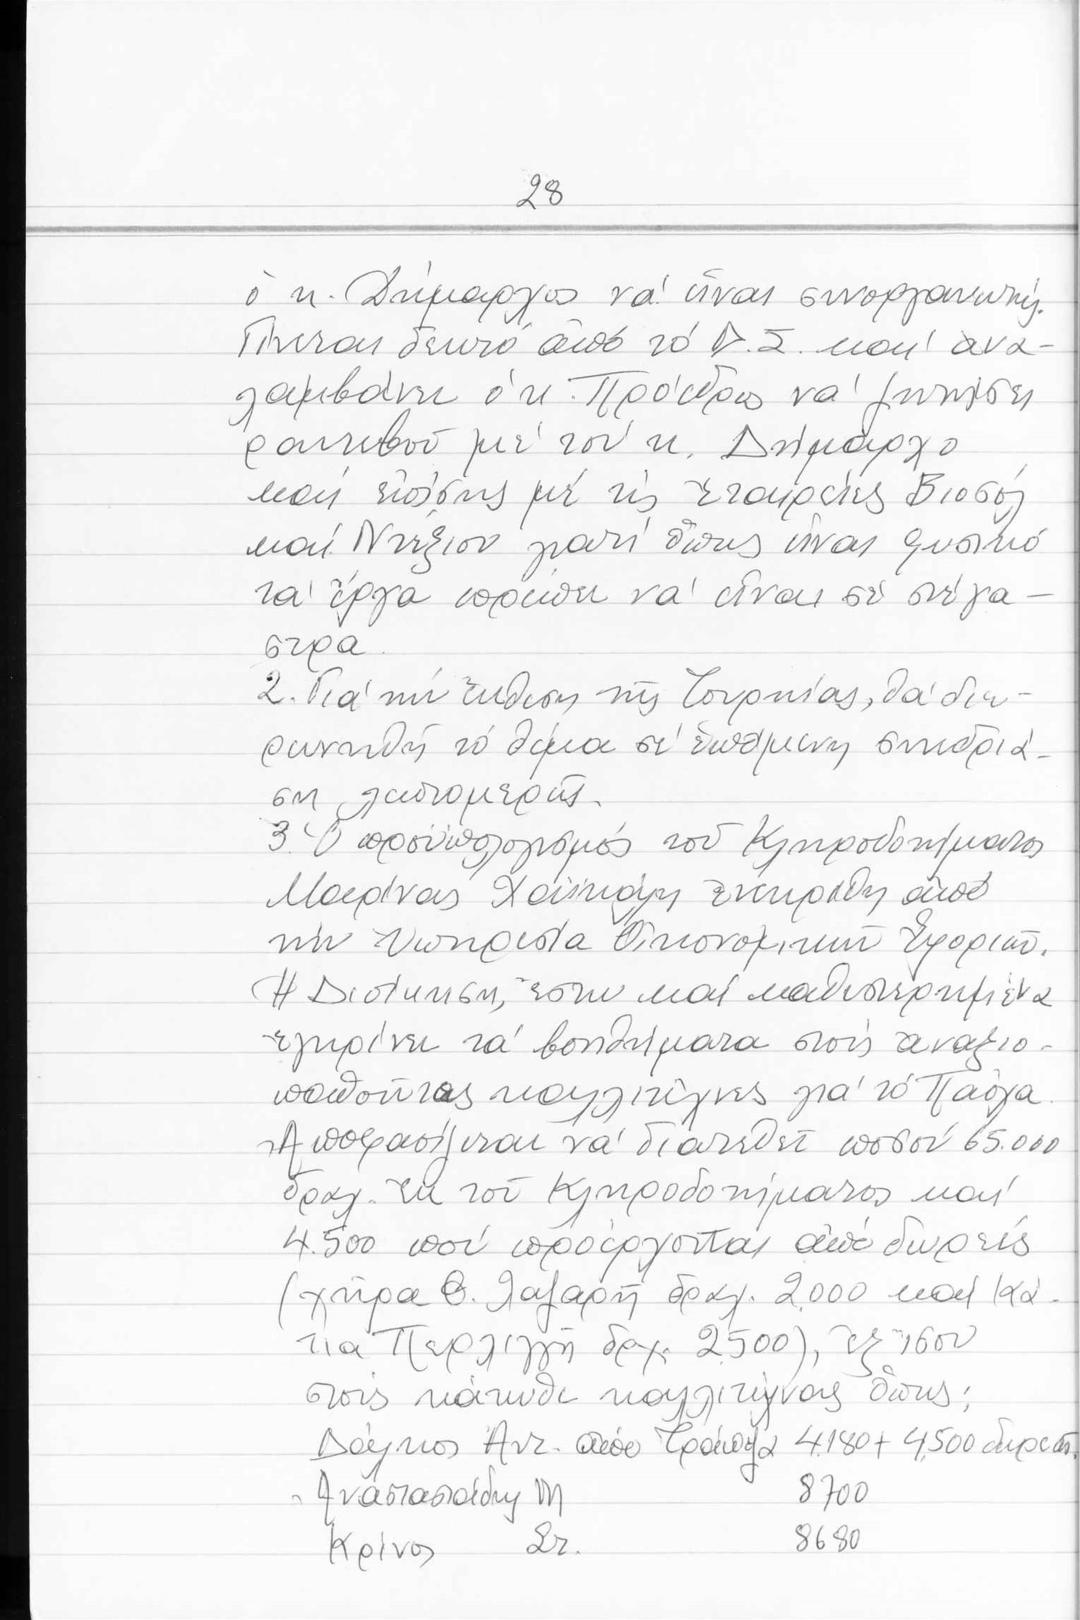 28
ὁ κ. Δήμαρχος νά εἶναι συνοργανωτής.
Γίνεται δεκτό ἀπό τό Δ.Σ. καί ἀνα-
λαμβάνει ὁ κ. Πρόεδρος νά μιλήσει
ραντεβού μέ τόν κ. Δήμαρχο
καί ἐπίσης μέ τίς ἑταιρεῖες Βιοσόλ
καί Ντέξιον γιατί ὅπως εἶναι φυσικό
τά ἔργα πρέπει νά εἶναι σέ στέγα-
στρα.
2. Γιά τήν ἔκθεση τῆς Τουρκίας, θά διε-
ρευνηθῆ τό θέμα σέ ἑπόμενη συνεδρία-
ση λεπτομερῶς.
3. Ὁ προϋπολογισμός τοῦ Κληροδοτήματος
Μαρίνας ἐνεκρίθη ἀπό
τήν Ὑπηρεσία Οἰκονομικῶν Ἐφοριῶν.
Ἡ Διοίκηση, ἔστω καί καθυστερημένα
ἐγκρίνει τά βοηθήματα στούς ἀναξιο-
παθοῦντας καλλιτέχνες γιά τό Πάσχα.
Ἀποφασίζεται νά διατεθεῖ ποσόν 65.000
δραχ. ἐκ τοῦ Κληροδοτήματος καί
4.500 πού προέρχονται ἀπό δωρεές
(χήρα Θ. Λαζαρῆ δραχ. 2.000 καί Κά-
τια Περλιγγῆ δρχ. 2500), ἐξ ἴσου
στούς κάτωθι καλλιτέχνας ὅπως:
Δάγκος Ἀντ. ἀπό Τράπεζα 4.180 + 4.500 δωρεάς.
Ἀναστασιάδης Μ 8700
Κρίνος Στ. 8680